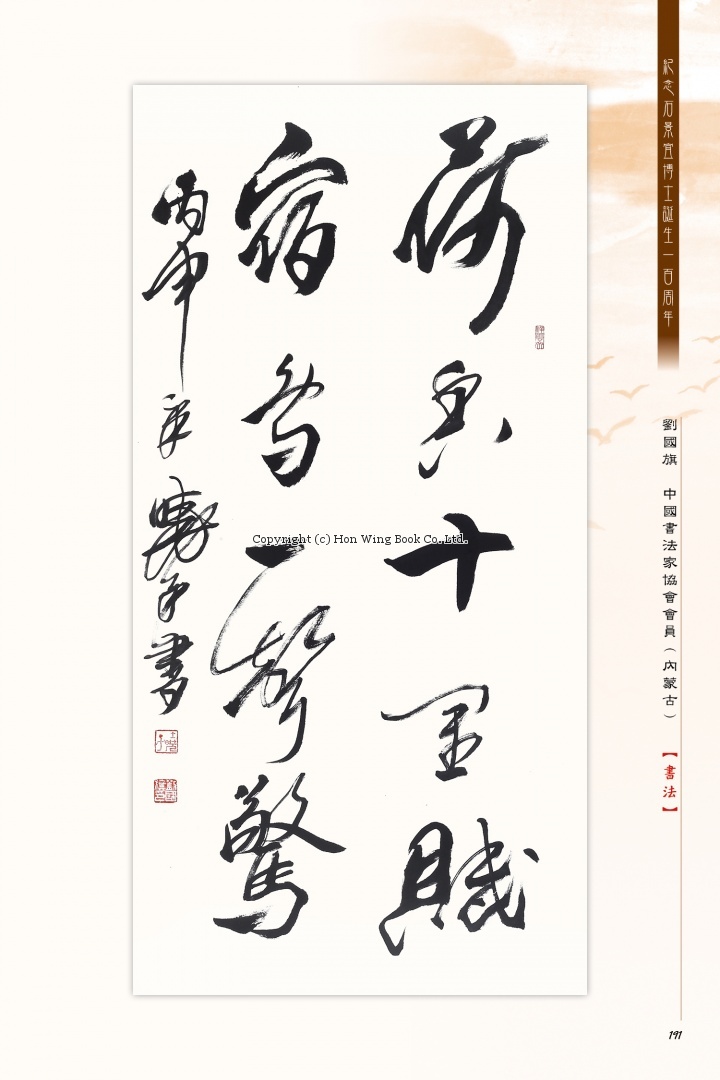 紀念石景宜博士誕生一百周年
劉國旗 中國書法家協會會員（內蒙古）
【書法】
荷香十里賦
宿鳥一聲驚
丙申年曉子書
Copyright (c) Hon Wing Book Co.,Ltd.
191